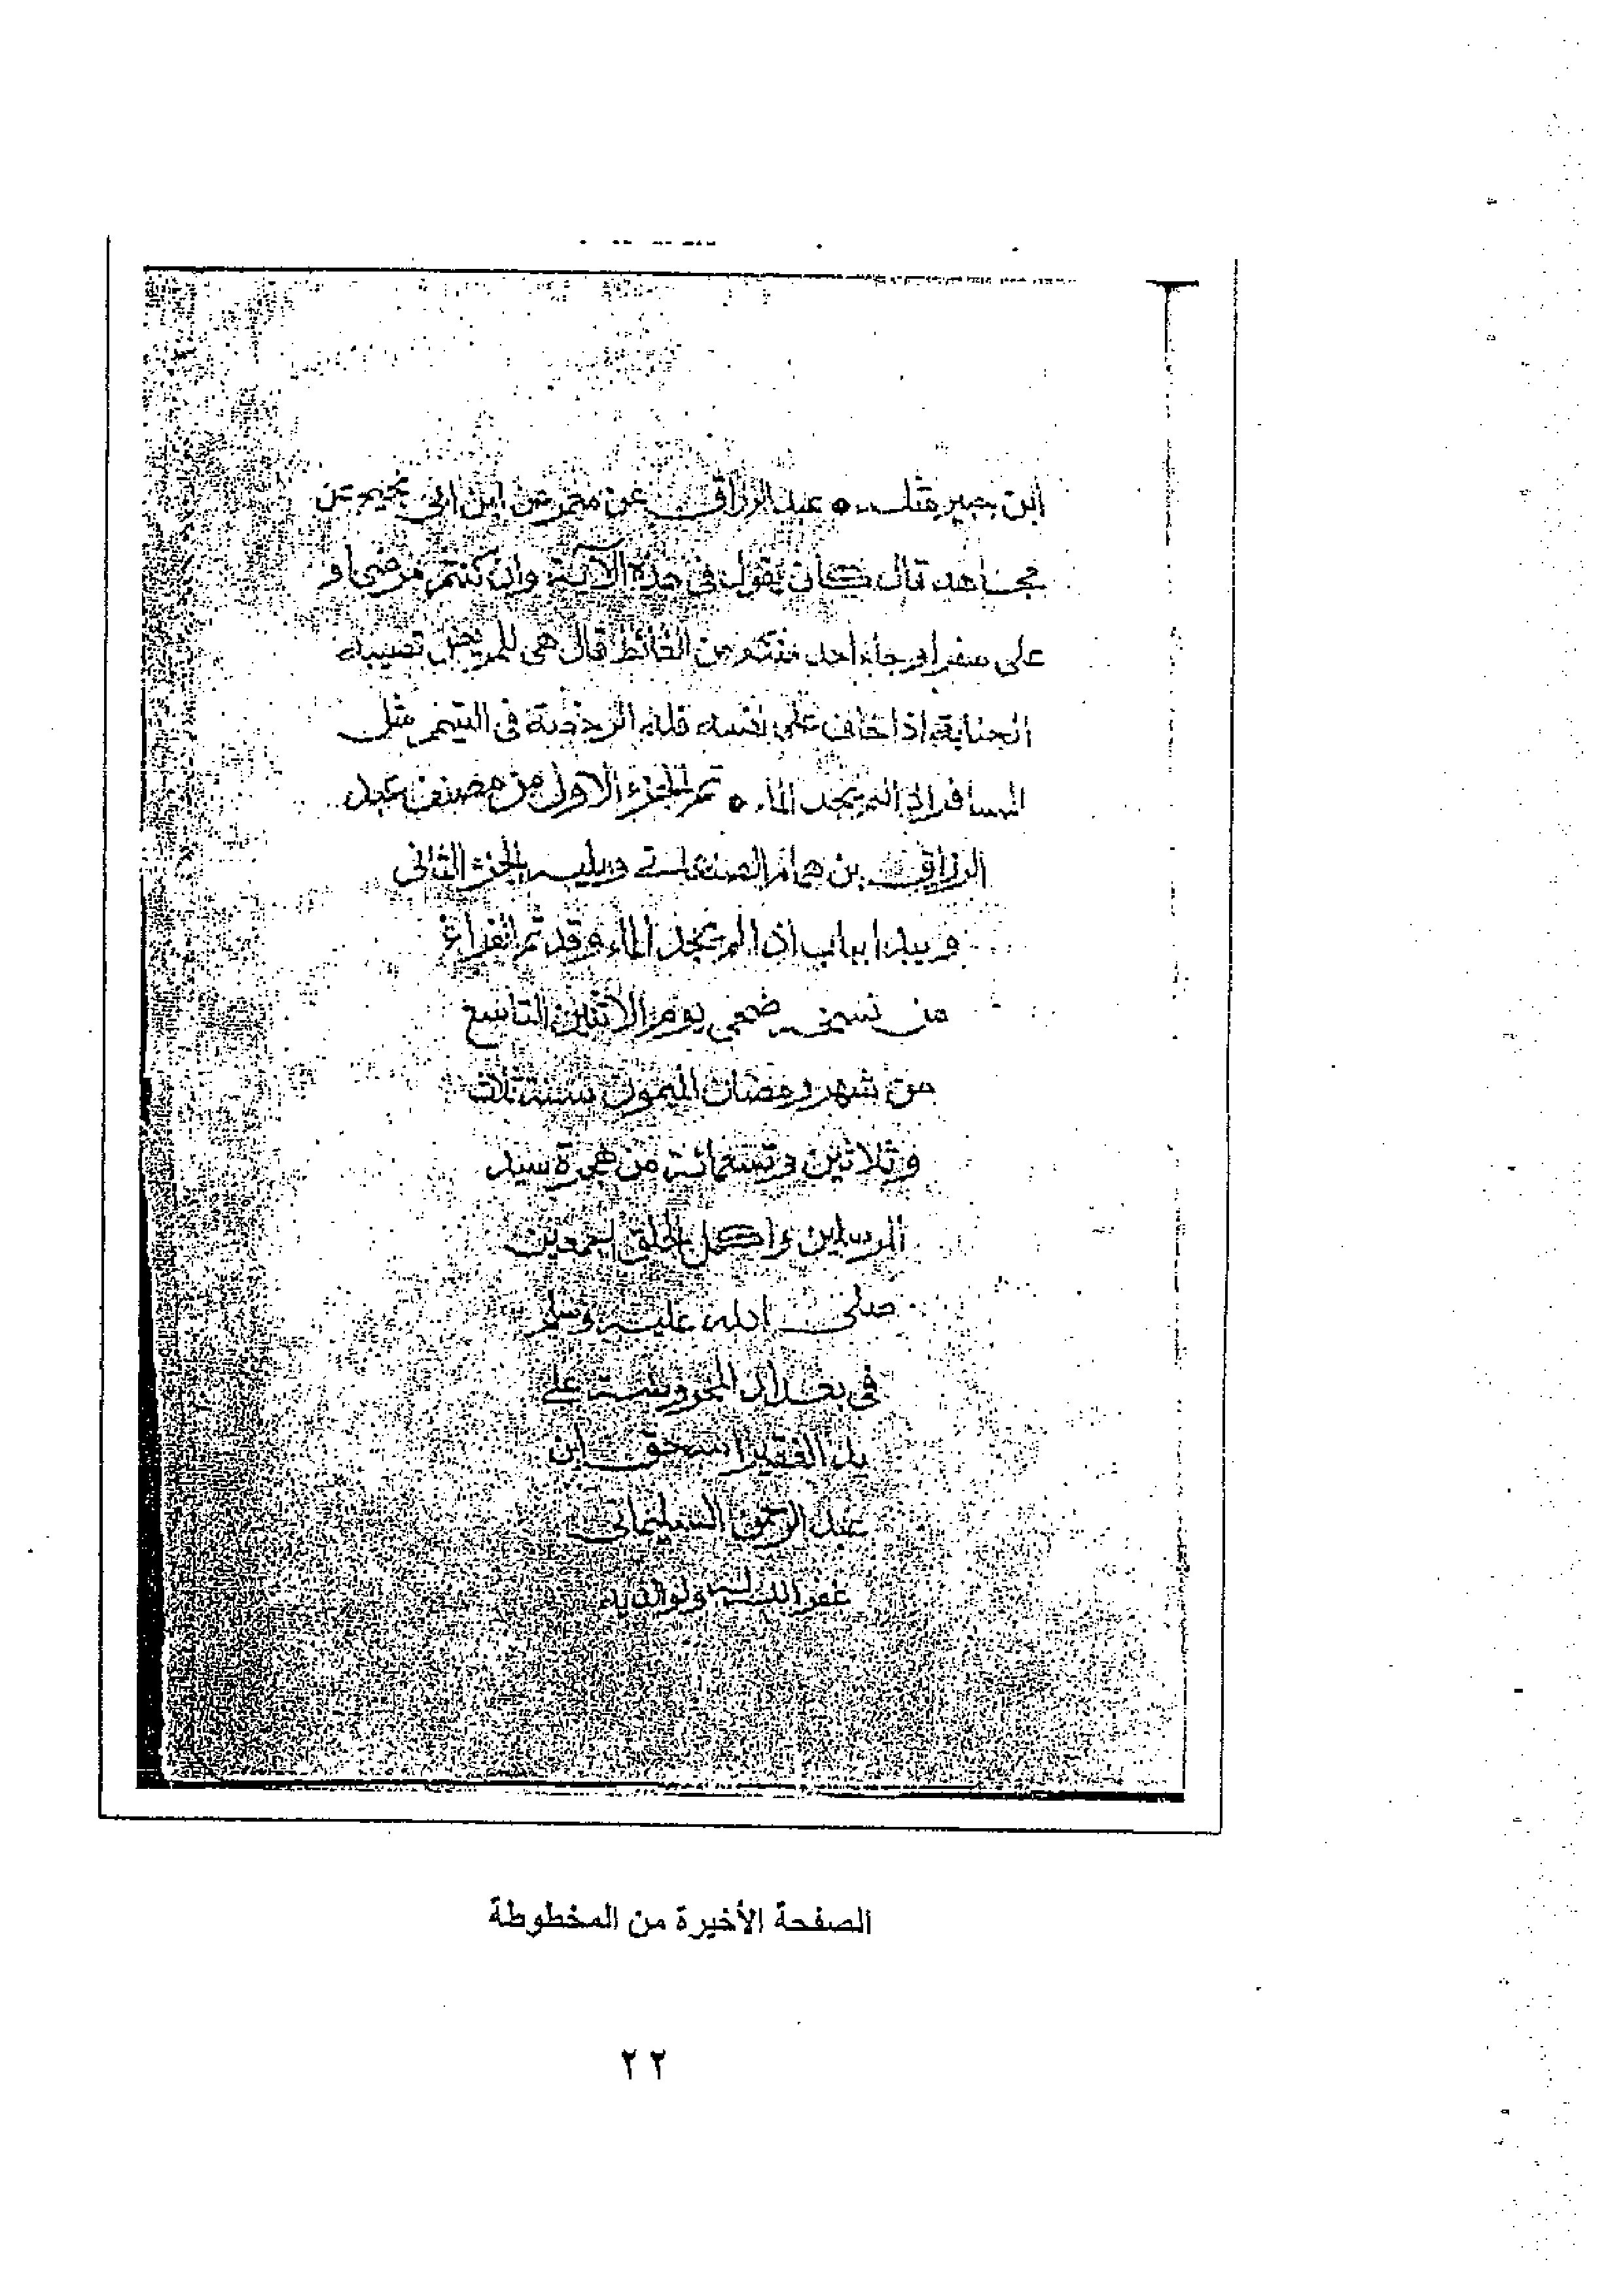 ابن جبير مثله ٥ عبد الرزاق عن معمر عن ابن ابى نجيح عن
مجاهد قال كان يقول فى هذه الآية وان كنتم مرضى او
على سفر او جاء احد منكم من الغائط قال هى للمريض تصيبه
الجنابة اذا خاف على نفسه فله الرخصة فى التيمم مثل
المسافر اذا لم يجد الماء ٥ تم الجزء الاول من مصنف عبد
الرزاق بن همام الصنعانى ويليه الجزء الثانى
ويبدا بباب اذا لم يجد الماء وقد تم الفراغ
من نسخه ضحى يوم الاثنين التاسع
من شهر رمضان الميمون سنة ثلاث
وثلاثين وتسعمائة من هجرة سيد
المرسلين واكمل الخلق اجمعين
صلى الله عليه وسلم
فى بغداد المحروسة على
يد الفقير اسحق ابن
عبد الرحمن السليمانى
غفر الله له ولوالديه
الصفحة الأخيرة من المخطوطة
٢٢